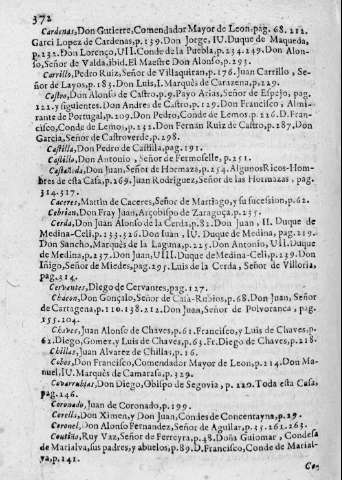 372
Cardenas, Don Gutierre, Comendador Mayor de Leon. pag. 68. 212.
Garci Lopez de Cardenas, p. 139. Don Jorge, IV. Duque de Maqueda,
p. 132. Don Lorenço, VII. Conde de la Puebla, p. 234. 249. Don Alon-
so, Señor de Valda, ibid. El Maestre Don Alonso, p. 293.
Carrillo, Pedro Ruiz, Señor de Villaquiran, p. 176. Juan Carrillo, Se-
ñor de Layos, p. 183. Don Luis, I. Marquès de Carazena, p. 129.
Castro, Don Alonso de Castro, p. 9. Payo Arias, Señor de Espejo, pag.
122. y siguientes. Don Andres de Castro, p. 129. Don Francisco, Almi-
rante de Portugal, p. 209. Don Pedro, Conde de Lemos, p. 126. D. Fran-
cisco, Conde de Lemos, p. 232. Don Fernan Ruiz de Castro, p. 287. Don
Garcia, Señor de Castroverde, p. 298.
Castilla, Don Pedro de Castilla, pag. 191.
Castillo, Don Antonio, Señor de Fermoselle, p. 251.
Castañeda, Don Juan, Señor de Hormaza, p. 254. Algunos Ricos-Hom-
bres de esta Casa, p. 269. Juan Rodriguez, Señor de las Hormazas, pag.
314. 317.
Caceres, Martin de Caceres, Señor de Martiago, y su sucession, p. 62.
Cebrian, Don Fray Juan, Arçobispo de Zaragoça, p. 235.
Cerda, Don Juan Alonso de la Cerda, p. 82. Don Juan, II. Duque de
Medina-Celi, p. 133. 526. Don Juan, IV. Duque de Medina, pag. 219.
Don Sancho, Marquès de la Laguna, p. 225. Don Antonio, VIII. Duque
de Medina, p. 237. Don Juan, VIII. Duque de Medina-Celi, p. 239. Don
Iñigo, Señor de Miedes, pag. 295. Luis de la Cerda, Señor de Villoria,
pag. 314.
Cervantes, Diego de Cervantes, pag. 127.
Chacon, Don Gonçalo, Señor de Casa-Rubios, p. 68. Don Juan, Señor
de Cartagena, p. 110. 138. 212. Don Juan, Señor de Polvoranca, pag.
155. 204.
Chaves, Juan Alonso de Chaves, p. 61. Francisco, y Luis de Chaves, p.
62. Diego, Gomez, y Luis de Chaves, p. 63. Fr. Diego de Chaves, p. 218.
Chillas, Juan Alvarez de Chillas, p. 16.
Cobos, Don Francisco, Comendador Mayor de Leon, p. 214. Don Ma-
nuel, IV. Marquès de Camarasa, p. 329.
Covarrubias, Don Diego, Obispo de Segovia, p. 120. Toda esta Casa,
pag. 246.
Coronado, Juan de Coronado, p. 199.
Corella, Don Ximen, y Don Juan, Condes de Concentayna, p. 29.
Coronel, Don Alonso Fernandez, Señor de Aguilar, p. 25. 262. 263.
Coutiño, Ruy Vaz, Señor de Ferreyra, p. 48. Doña Guiomar, Condesa
de Marialva, sus padres, y abuelos, p. 89. D. Francisco, Conde de Marial-
va, p. 141.